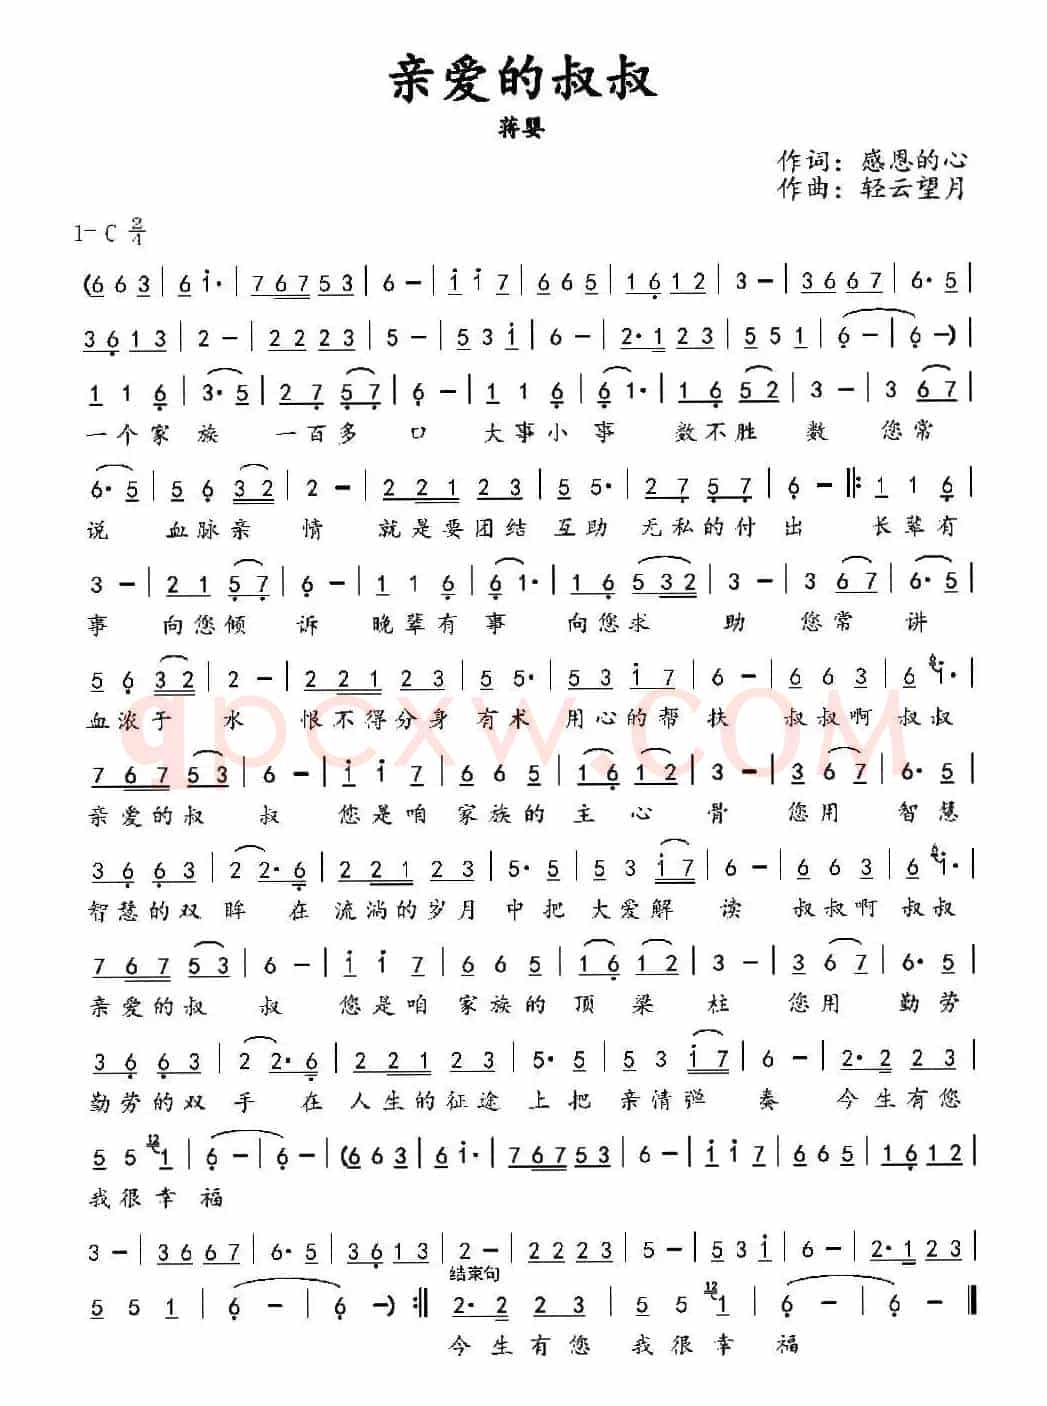 亲爱的叔叔
蒋婴
作词：感恩的心
作曲：轻云望月
1-C 2/4
(6 6 3 | 6 i· | 7 6 7 5 3 | 6 – | i i 7 | 6 6 5 | 1 6 1 2 | 3 – | 3 6 6 7 | 6· 5 |
3 6 1 3 | 2 – | 2 2 2 3 | 5 – | 5 3 i | 6 – | 2· 1 2 3 | 5 5 1 | 6 – | 6 –) |
1 1 6 | 3· 5 | 2 7 5 7 | 6 – | 1 1 6 | 6 1· | 1 6 5 2 | 3 – | 3 6 7 |
一个家族 一百多口 大事小事 数不胜数 您常
6· 5 | 5 6 3 2 | 2 – | 2 2 1 2 3 | 5 5· | 2 7 5 7 | 6 – ‖: 1 1 6 |
说 血脉亲情 就是要团结互助 无私的付出 长辈有
3 – | 2 1 5 7 | 6 – | 1 1 6 | 6 1· | 1 6 5 3 2 | 3 – | 3 6 7 | 6· 5 |
事 向您倾诉 晚辈有事 向您求助 您常讲
5 6 3 2 | 2 – | 2 2 1 2 3 | 5 5· | 5 3 i 7 | 6 – | 6 6 3 | 6 i· |
血浓于水 恨不得分身有术 用心的帮扶 叔叔啊叔叔
7 6 7 5 3 | 6 – | i i 7 | 6 6 5 | 1 6 1 2 | 3 – | 3 6 7 | 6· 5 |
亲爱的叔叔 您是咱家族的主心骨 您用智慧
3 6 6 3 | 2 2· 6 | 2 2 1 2 3 | 5· 5 | 5 3 i 7 | 6 – | 6 6 3 | 6 i· |
智慧的双眸在流淌的岁月中把大爱解读 叔叔啊叔叔
7 6 7 5 3 | 6 – | i i 7 | 6 6 5 | 1 6 1 2 | 3 – | 3 6 7 | 6· 5 |
亲爱的叔叔 您是咱家族的顶梁柱 您用勤劳
3 6 6 3 | 2 2· 6 | 2 2 1 2 3 | 5· 5 | 5 3 i 7 | 6 – | 2· 2 2 3 |
勤劳的双手在人生的征途上把亲情弹奏 今生有您
5 5 12 1 | 6 – | 6 – | (6 6 3 | 6 i· | 7 6 7 5 3 | 6 – | i i 7 | 6 6 5 | 1 6 1 2 |
我很幸福
3 – | 3 6 6 7 | 6· 5 | 3 6 1 3 | 2 – | 2 2 2 3 | 5 – | 5 3 i | 6 – | 2· 1 2 3 |
结束句
5 5 1 | 6 – | 6 –) :‖ 2· 2 2 3 | 5 5 12 1 | 6 – | 6 – ‖
今生有您 我很幸福
qpcxw.COM